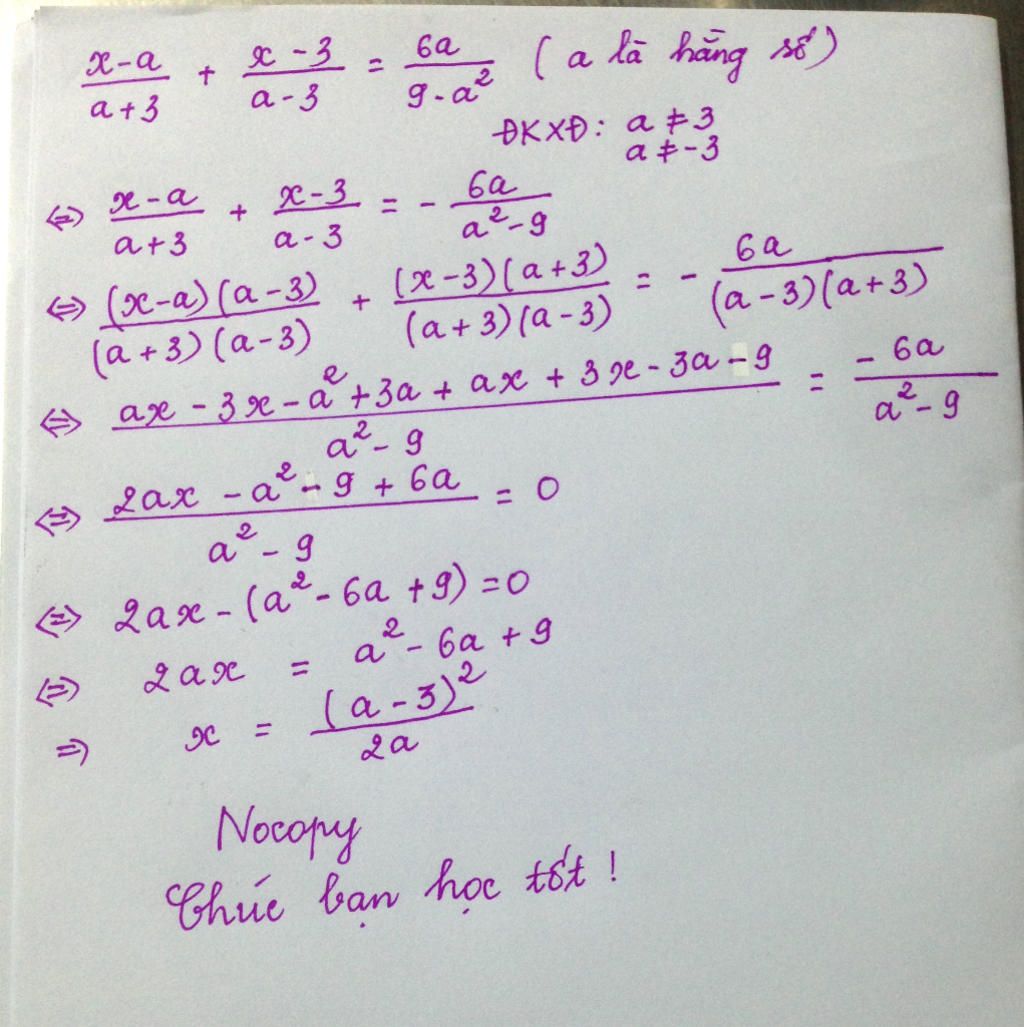 (x-a)/(a+3) + (x-3)/(a-3) = 6a/(9-a²) (a là hằng số)
ĐKXĐ: a ≠ 3
a ≠ -3
⇔ (x-a)/(a+3) + (x-3)/(a-3) = - 6a/(a²-9)
⇔ (x-a)(a-3)/((a+3)(a-3)) + (x-3)(a+3)/((a+3)(a-3)) = - 6a/((a-3)(a+3))
⇔ (ax - 3x - a² + 3a + ax + 3x - 3a - 9)/(a² - 9) = -6a/(a² - 9)
⇔ (2ax - a² - 9 + 6a)/(a² - 9) = 0
⇔ 2ax - (a² - 6a + 9) = 0
⇔ 2ax = a² - 6a + 9
⇒ x = (a - 3)²/2a
Nocopy
Chúc bạn học tốt !